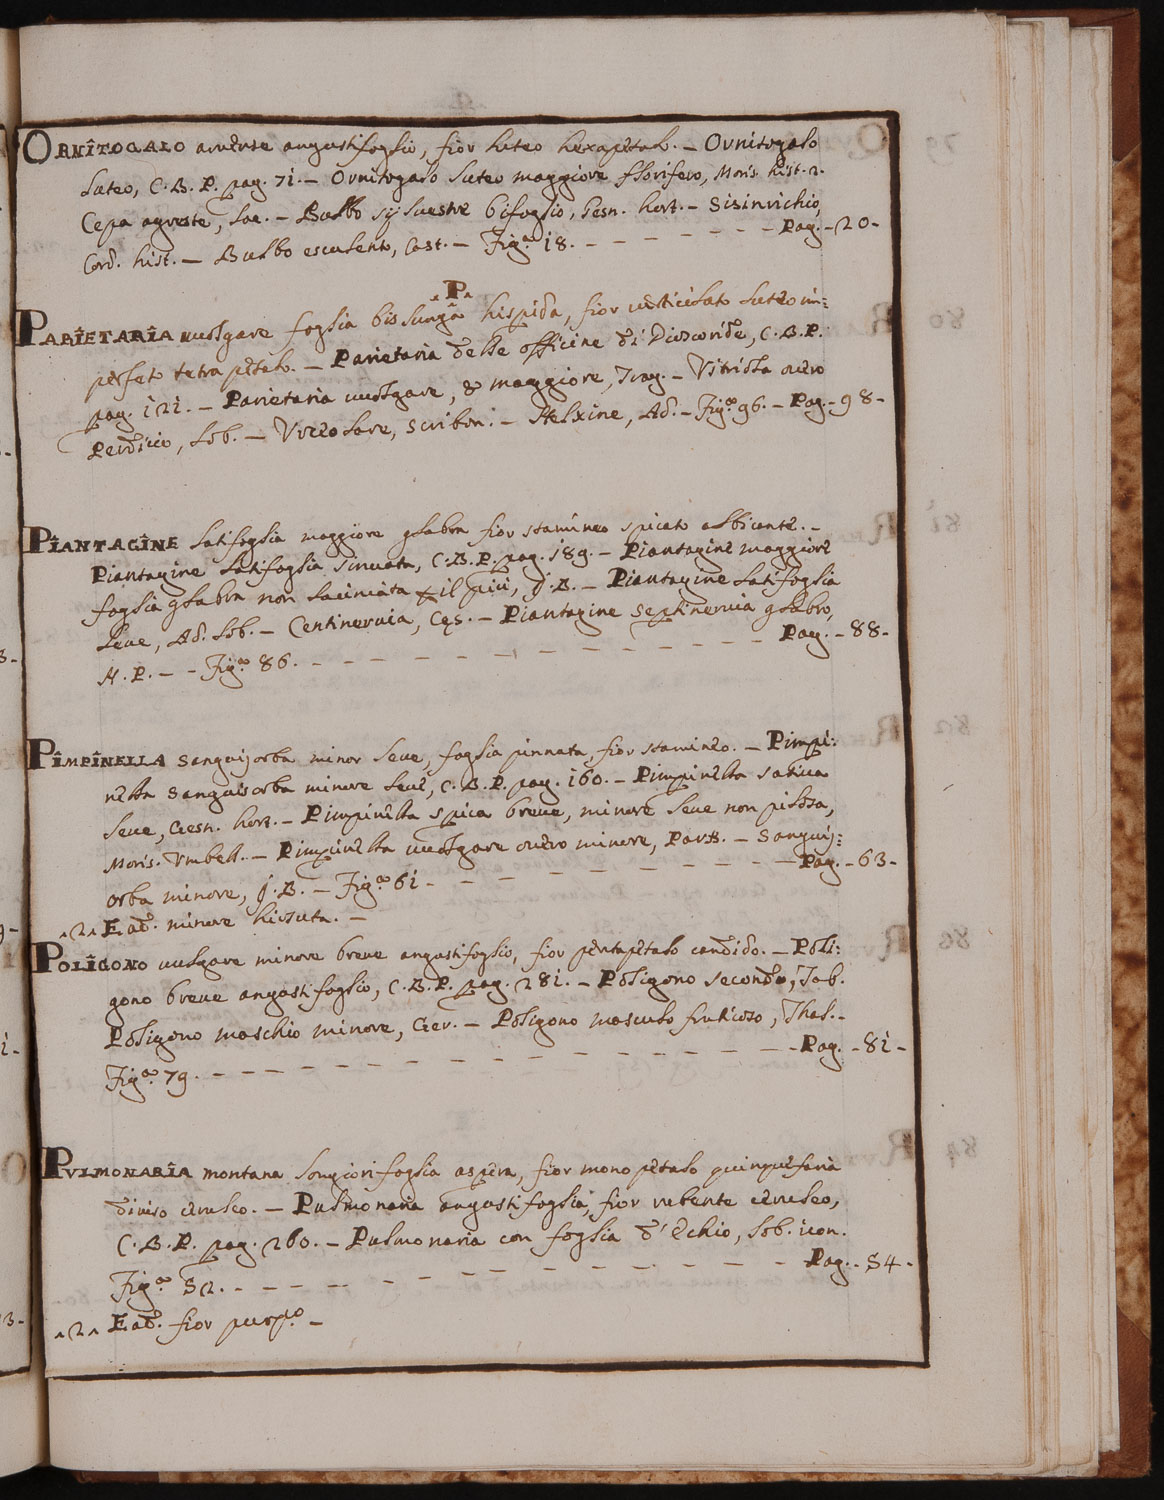 ORNÎTOGALO arvense angustifoglio, fior luteo hexapetal. – Ornitogalo
luteo, C. B. P. pag. 71. – Ornitogalo luteo maggiore florifero, Moris. hist. 2.
Cepa agreste, Loe. – Bulbo sijluestre bifoglio, Gesn. hort. – Sisinrichio,
Cord. hist. – Bulbo esculento, Cast. – Fig.ª 18. – – – – – – – Pag. – 20 –
^P^
PARÎETARÎA vulgare foglia bislungâ hispida, fior verticilato luteo im:
perfeto tetrapetal. – Parietaria delle officine di Dioscoride, C. B. P.
pag. 121. – Parietaria vulgare, & maggiore, Trag. – Vitriola overo
Perdicio, Lob. – Vrceolare, Scribon. – Helxine, Ad. – Fig.ª 96. – Pag. – 98 –
PÎANTAGÎNE latifoglia maggiore glabra fior stamineo spicato albicante. –
Piantagine latifoglia sinuata, C. B. P. pag. 189. – Piantagine maggiore
foglia glabra non laciniata il più, J. B. – Piantagine latifoglia
leue, Ad. Lob. – Centineruia, Cęs. – Piantagine septineruia glabro,
H. P. – – Fig.ª 86. – – – – – – – – – – – – Pag. – 88 –
PÎMPÎNELLA sanguijorba minor leue, foglia pinnata, fior stamineo. – Pimpi:
nella sanguisorba minore leue, C. B. P. pag. 160. – Pimpinella satiua
leue, Gesn. hort. – Pimpinella spica breue, minore leue non pilosa,
Moris. Vmbell. – Pimpinella vulgare overo minore, Park. – Sanguij:
orba minore, J. B. – Fig.ª 61 – – – – – – – – – – Pag. – 63 –
^2^ Ead.ª minore hirsuta. –
POLÎGONO vulgare minore breue angustifoglio, fior pentapetalo candido. – Poli:
gono breue angustifoglio, C. B. P. pag. 281. – Poligono secondo, Tab.
Poligono maschio minore, Ger. – Poligono masculo fruticoso, Thal. –
Fig.ª 79. – – – – – – – – – – – – – – – Pag. – 81 –
PVLMONARÎA montana longiorifoglia aspera, fior monopetalo quinquefaria
diuiso ceruleo. – Pulmonaria angustifoglia, fior rubente ceruleo,
C. B. P. pag. 260. – Pulmonaria con foglia d' Echio, Lob. icon.
Fig.ª 52. – – – – – – – – – – – – – – Pag. – 54 –
^2^ Ead.ª fior purp.º –